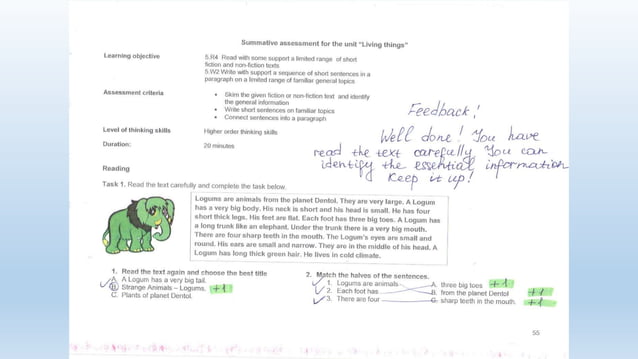 Summative assessment for the unit "Living things"
Learning objective
5.R4 Read with some support a limited range of short
fiction and non-fiction texts
5.W2 Write with support a sequence of short sentences in a
paragraph on a limited range of familiar general topics
Assessment criteria
• Skim the given fiction or non-fiction text and identify
the general information
• Write short sentences on familiar topics
• Connect sentences into a paragraph
Level of thinking skills
Higher order thinking skills
Duration:
20 minutes
Feedback!
Well done! You have
read the text carefully. You can
identify the essential information
Keep it up!
Reading
Task 1. Read the text carefully and complete the task below.
Logums are animals from the planet Dentol. They are very large. A Logum
has a very big body. His neck is short and his head is small. He has four
short thick legs. His feet are flat. Each foot has three big toes. A Logum has
a long trunk like an elephant. Under the trunk there is a very big mouth.
There are four sharp teeth in the mouth. The Logum's eyes are small and
round. His ears are small and narrow. They are in the middle of his head. A
Logum has long thick green hair. He lives in cold climate.
1. Read the text again and choose the best title
A. A Logum has a very big tail.
B. Strange Animals – Logums. +1
C. Plants of planet Dentol.
2. Match the halves of the sentences.
1. Logums are animals A. three big toes +1
2. Each foot has B. from the planet Dentol +1
3. There are four C. sharp teeth in the mouth. +1
55